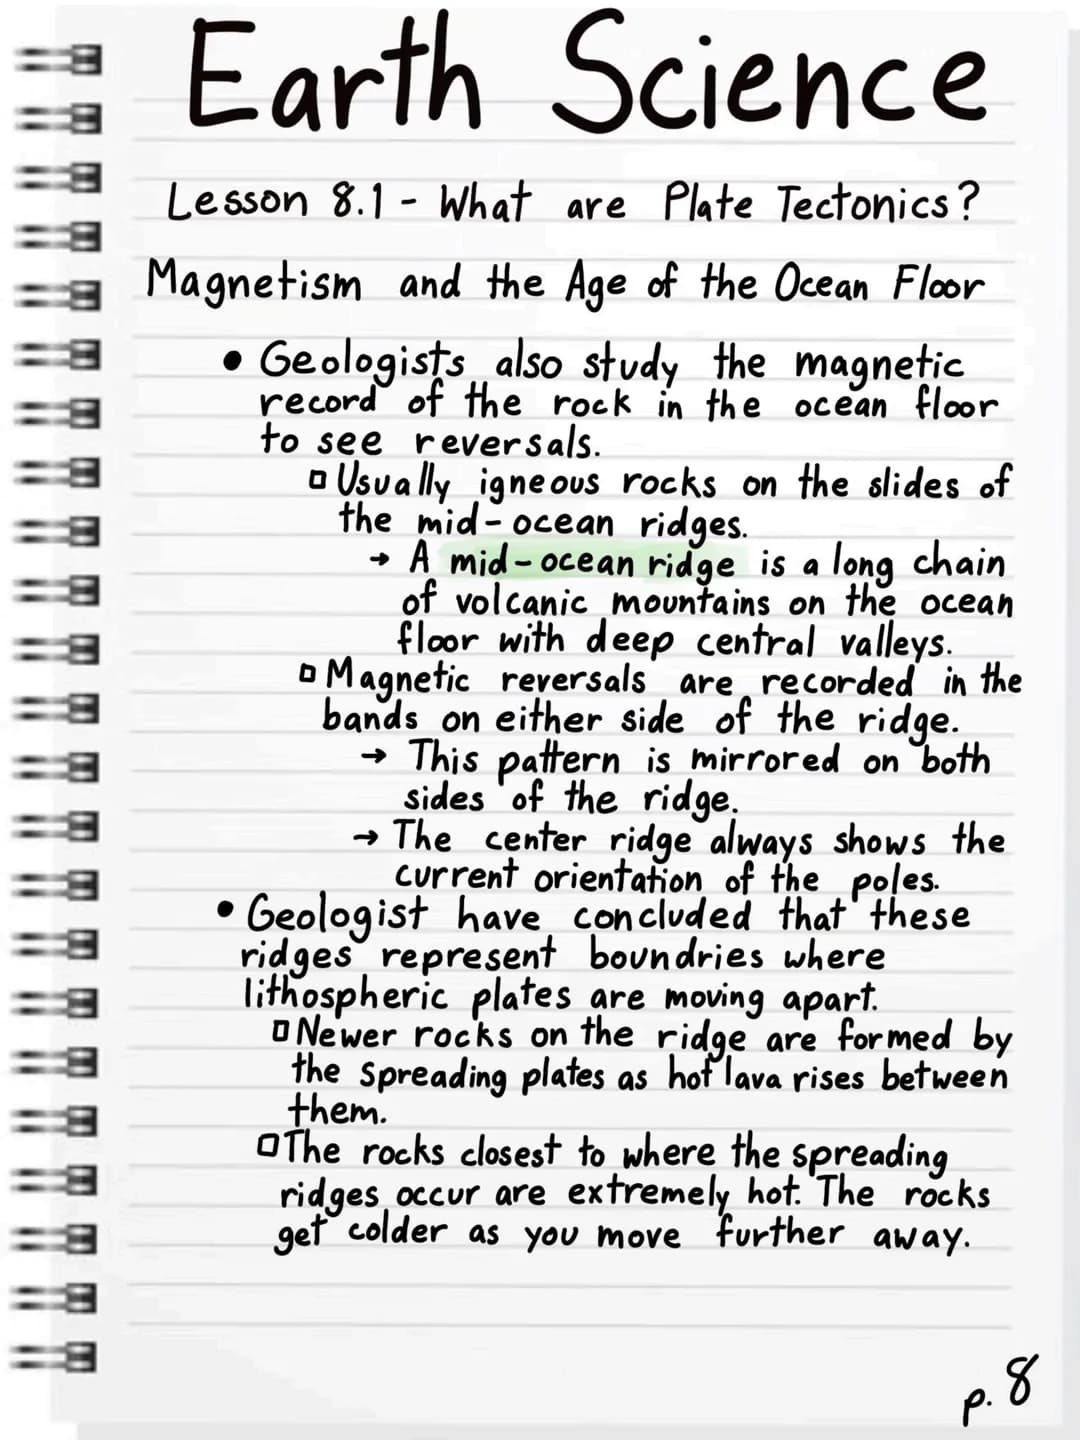 Earth Science
Lesson 8.1 - What are Plate Tectonics?
Magnetism and the Age of the Ocean Floor
• Geologists also study the magnetic
record of the rock in the ocean floor
to see reversals.
▫ Usually igneous rocks on the slides of
the mid-ocean ridges.
→ A mid-ocean ridge is a long chain
of volcanic mountains on the ocean
floor with deep central valleys.
▫ Magnetic reversals are recorded in the
bands on either side of the ridge.
→ This pattern is mirrored on both
sides of the ridge.
→ The center ridge always shows the
current orientation of the poles.
• Geologist have concluded that these
ridges represent boundries where
lithospheric plates are moving apart.
▫ Newer rocks on the ridge are formed by
the spreading plates as hot lava rises between
them.
▫ The rocks closest to where the spreading
ridges occur are extremely hot. The rocks
get colder as you move further away.
p. 8